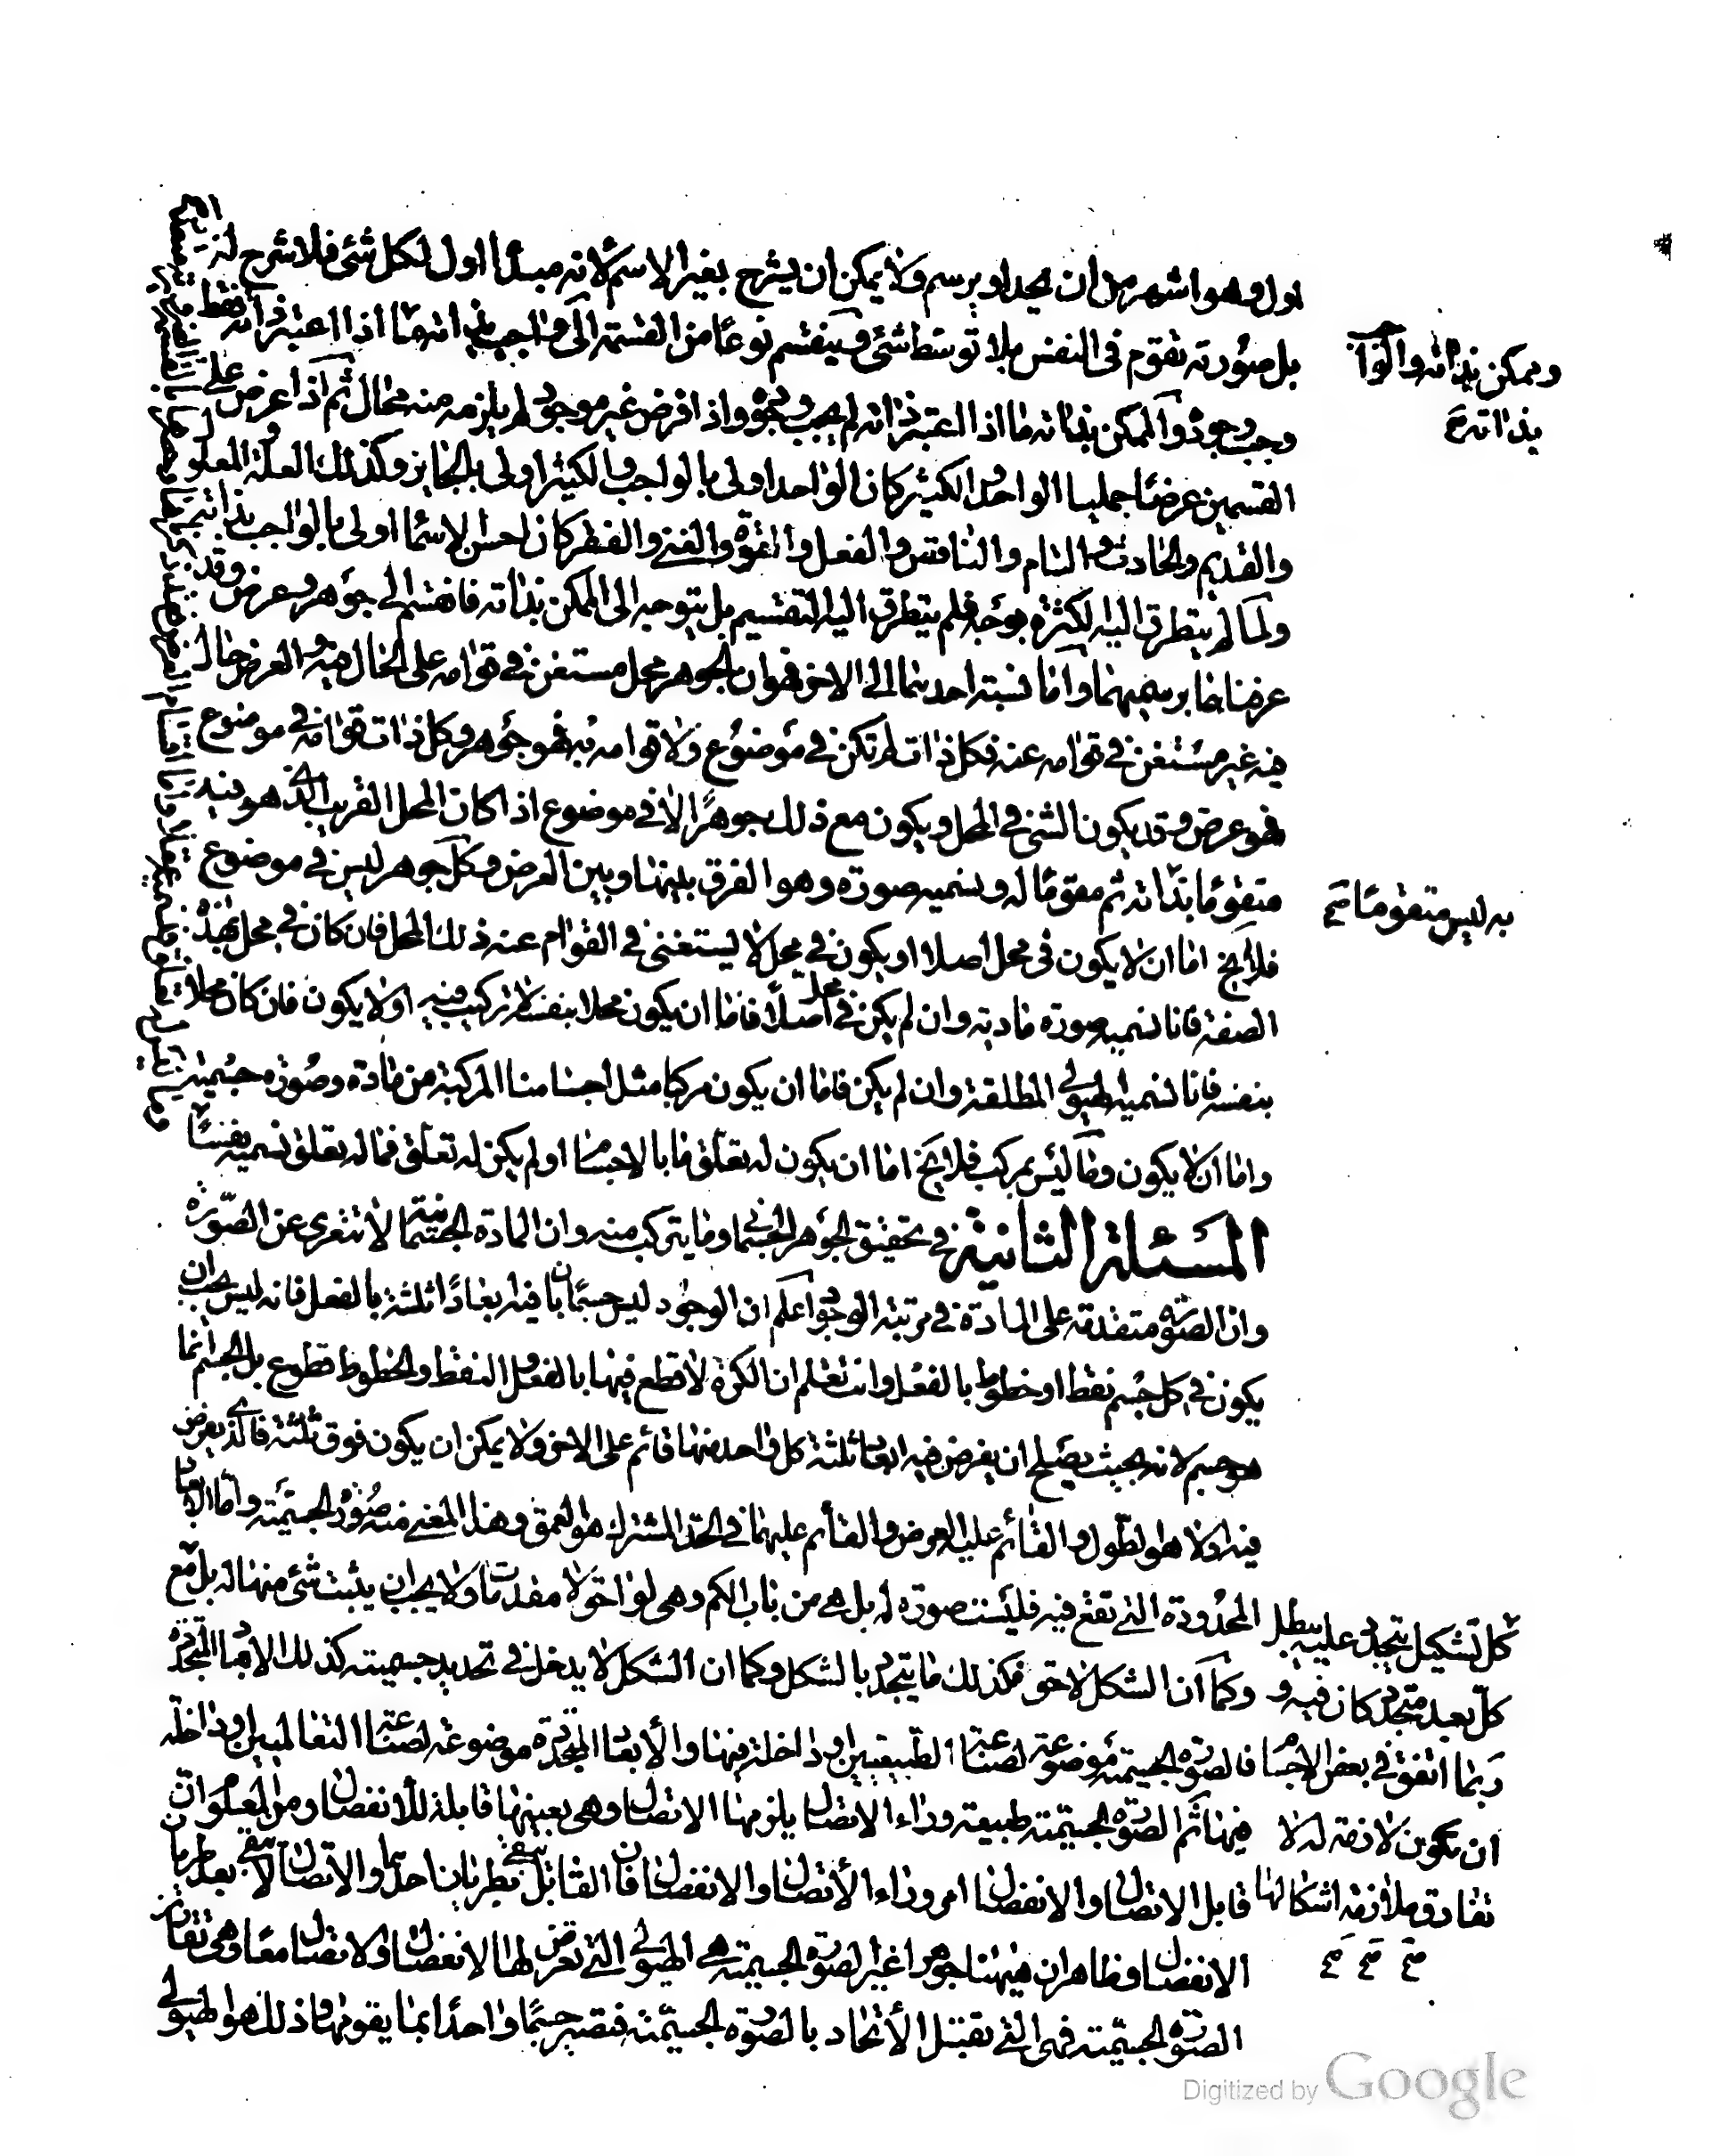 اول وهو اشهر من ان يحد او يرسم ولا يمكن ان يشرح بغير الاسم لانه مبدأ اول لكل شئ فلا شرح له
بل صورته تقوم فى النفس بلا توسط شئ وينقسم نوعا من القسمة الى واجب بذاته ما اذا اعتبر ذاته فقط
وجب وجوده والممكن بذاته ما اذا اعتبر ذاته لم يجب وجوده واذا فرض غير موجود لم يلزم منه محال ثم اذا عرض على
القسمين عرضا حمليا الواحد والكثير كان الواحد اولى بالواجب والكثير اولى بالجايز وكذلك العلة والمعلول
والقديم والحادث والتام والناقص والفعل والقوة والغنى والفقر كان احسن الاسما اولى بالواجب بذاته
ولما لم يتطرق اليه الكثرة بوجه فلم يتطرق اليه التقسيم بل يتوجه الى الممكن بذاته فانقسم الى جوهر وعرض وقد
عرفناهما برسميهما واما نسبة احدهما الى الاخر فهو ان الجوهر محل مستغن فى قوامه على الحال فيه والعرض حال
فيه غير مستغن فى قوامه عنه فكل ذات لم تكن فى موضوع ولا قوامه به فهو جوهر وكل ذات قوامه فى موضوع
فهو عرض وقد يكون الشئ فى المحل ويكون مع ذلك جوهرا لا فى موضوع اذا كان المحل القريب الذى هو فيه
متقوما بذاته ثم مقوما له ونسميه صورة وهو الفرق بينهما وبين العرض وكل جوهر ليس فى موضوع
فلا يخ اما ان لا يكون فى محل اصلا او يكون فى محل لا يستغنى فى القوام عنه ذلك المحل فان كان فى محل بهذه
الصفة فانا نسميه صورة مادية وان لم يكن فى محل اصلا فاما ان يكون محلا بنفسه لا تركيب فيه او لا يكون فان كان محلا
بنفسه فانا نسميه الهيولى المطلقة وان لم يكن فاما ان يكون مركبا مثل اجسامنا المركبة من مادة وصورة جسمية
واما ان لا يكون وما ليس بمركب فلا يخ اما ان يكون له تعلق ما بالاجسام او لم يكن له تعلق فما له تعلق نسميه نفسا
المسئلة الثانية فى تحقيق الجوهر الجسمانى وما يتركب منه وان المادة الجسمانية لا تتعرى عن الصورة
وان الصورة متقدمة على المادة فى مرتبة الوجود اعلم ان الوجود ليس جسما بان فيه ابعادا ثلثة بالفعل فانه ليس يجب ان
يكون فى كل جسم نقط او خطوط بالفعل وانت تعلم ان الكرة لا قطع فيها بالفعل والنقط والخطوط قطوع بل الجسم انما
هو جسم لانه بحيث يصلح ان يفرض فيه ابعاد ثلثة كل واحد منها قائم على الاخر ولا يمكن ان يكون فوق ثلثة فالذى يفرض
فيه اولا هو الطول والقائم عليه العرض والقائم عليهما فى الحد المشترك هو العمق وهذا المعنى منه صورة الجسمية واما الابعاد
المحدودة التى تقع فيه فليست صورة له بل هى من باب الكم وهى لواحق لا مقدمات ولا يجب ان يثبت شئ منها له بل مع
كل تشكيل يتجدد عليه يبطل
وكما ان الشكل لاحق فكذلك ما يتجدد بالشكل وكما ان الشكل لا يدخل فى تحديد جسميته كذلك الابعاد المتجددة
كل بعد متجدد كان فيه و
فالصورة الجسمية موضوعة لصناعة الطبيعيين او داخلة فيها والابعاد المتجددة موضوعة لصناعة التعالميين او داخلة
ربما اتفق فى بعض الاجسام
فيها ثم الصورة الجسمية طبيعة وراء الاتصال يلزمها الاتصال وهى بعينها قابلة للانفصال ومن المعلوم ان
ان تكون لازمة له لا
قابل الاتصال والانفصال امر وراء الاتصال والانفصال فان القابل يبقى بطريان احدهما والاتصال لا يبقى بعد طريان
تفارق ملازمة اشكالها
الانفصال وظاهر ان هيهنا جوهرا غير الصورة الجسمية هى الهيولى التى تعرض لها الانفصال والاتصال معا وهى تقارن
صح صح صح
الصورة الجسمية فهى التى تقبل الاتحاد بالصورة الجسمية فتصير جسما واحدا بما يقومها وذلك هو الهيولى
وممكن بذاته والواجب
بذاته صح
به ليس متقوما صح
Digitized by Google